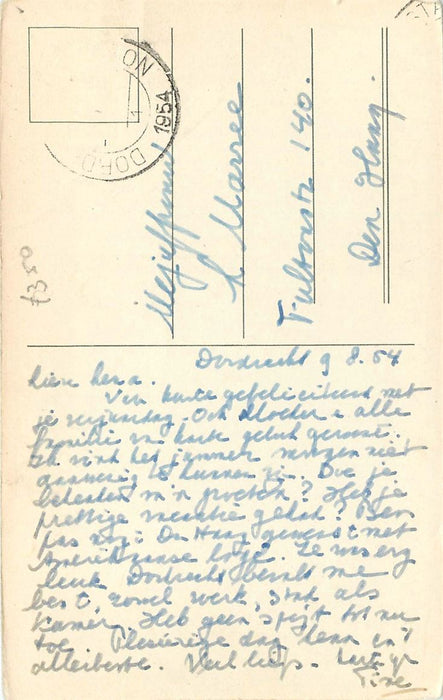 DORD
1954
f3,50
Mejuffrouw
L Marree
Fultonstr 140.
Den Haag
Dordrecht 9 8. 54
Lieve
Van harte gefeliciteerd met
je verjaardag. Ook Moeder & alle
familie van harte geluk gewenst.
Ik vind het jammer morgen niet
aanwezig te kunnen zijn. Doe je
m'n groeten? Heb je
prettige vacantie gehad? Ben
pas nog in Den Haag geweest met
Amerikaanse logé. 't was erg
leuk Dordrecht bevalt me
best, zowel werk, stad als
kamer. Heb geen spijt tot nu
toe. Plezierige dag en 't
allerbeste. Veel liefs.